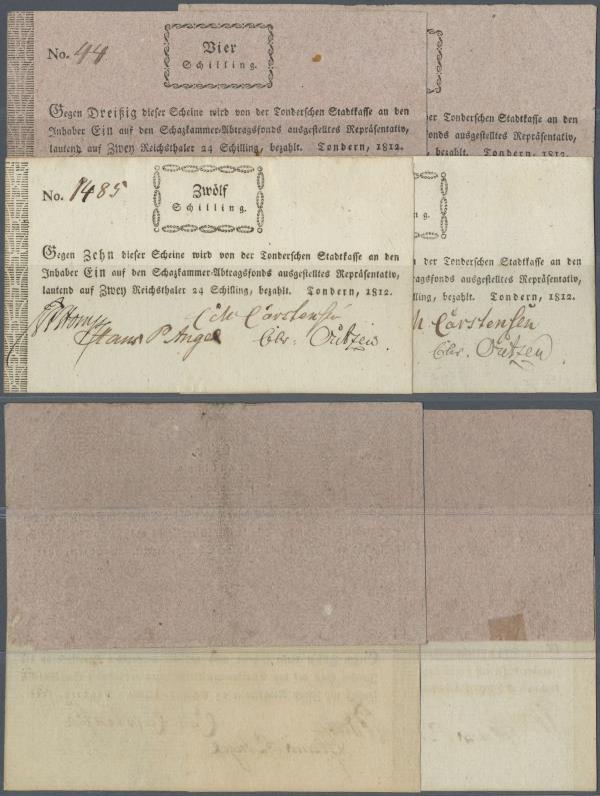 No. 44
Vier
Schilling.
Gegen Dreißig dieser Scheine wird von der Tonderschen Stadtkasse an den
Inhaber Ein auf den Schazkammer-Abtragsfonds ausgestelltes Repräsentativ,
lautend auf Zwey Reichsthaler 24 Schilling, bezahlt. Tondern, 1812.
der Tonderschen Stadtkasse an den
fonds ausgestelltes Repräsentativ,
ling, bezahlt. Tondern, 1812.
No. 1485
Zwölf
Schilling.
Gegen Zehn dieser Scheine wird von der Tonderschen Stadtkasse an den
Inhaber Ein auf den Schazkammer-Abtragsfonds ausgestelltes Repräsentativ,
lautend auf Zwey Reichsthaler 24 Schilling, bezahlt. Tondern, 1812.
Carstensen
Hans P Angel Outzen
ng.
der Tonderschen Stadtkasse an den
tragsfonds ausgestelltes Repräsentativ,
lling, bezahlt. Tondern, 1812.
Carstensen
Outzen